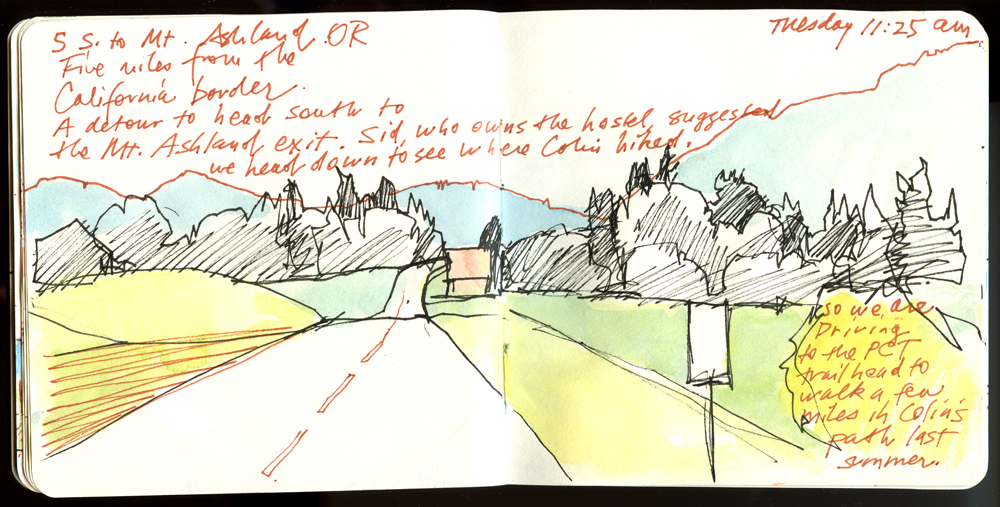 S S. to Mt. Ashland. OR
Five miles from the
California border.
A detour to head south to
the Mt. Ashland exit. Sid, who owns the hostel, suggested
we head down to see where Colin hiked.
Tuesday 11:25 am
so we are
Driving
to the PCT
trail head to
walk a few
miles in Colin's
path last
summer.